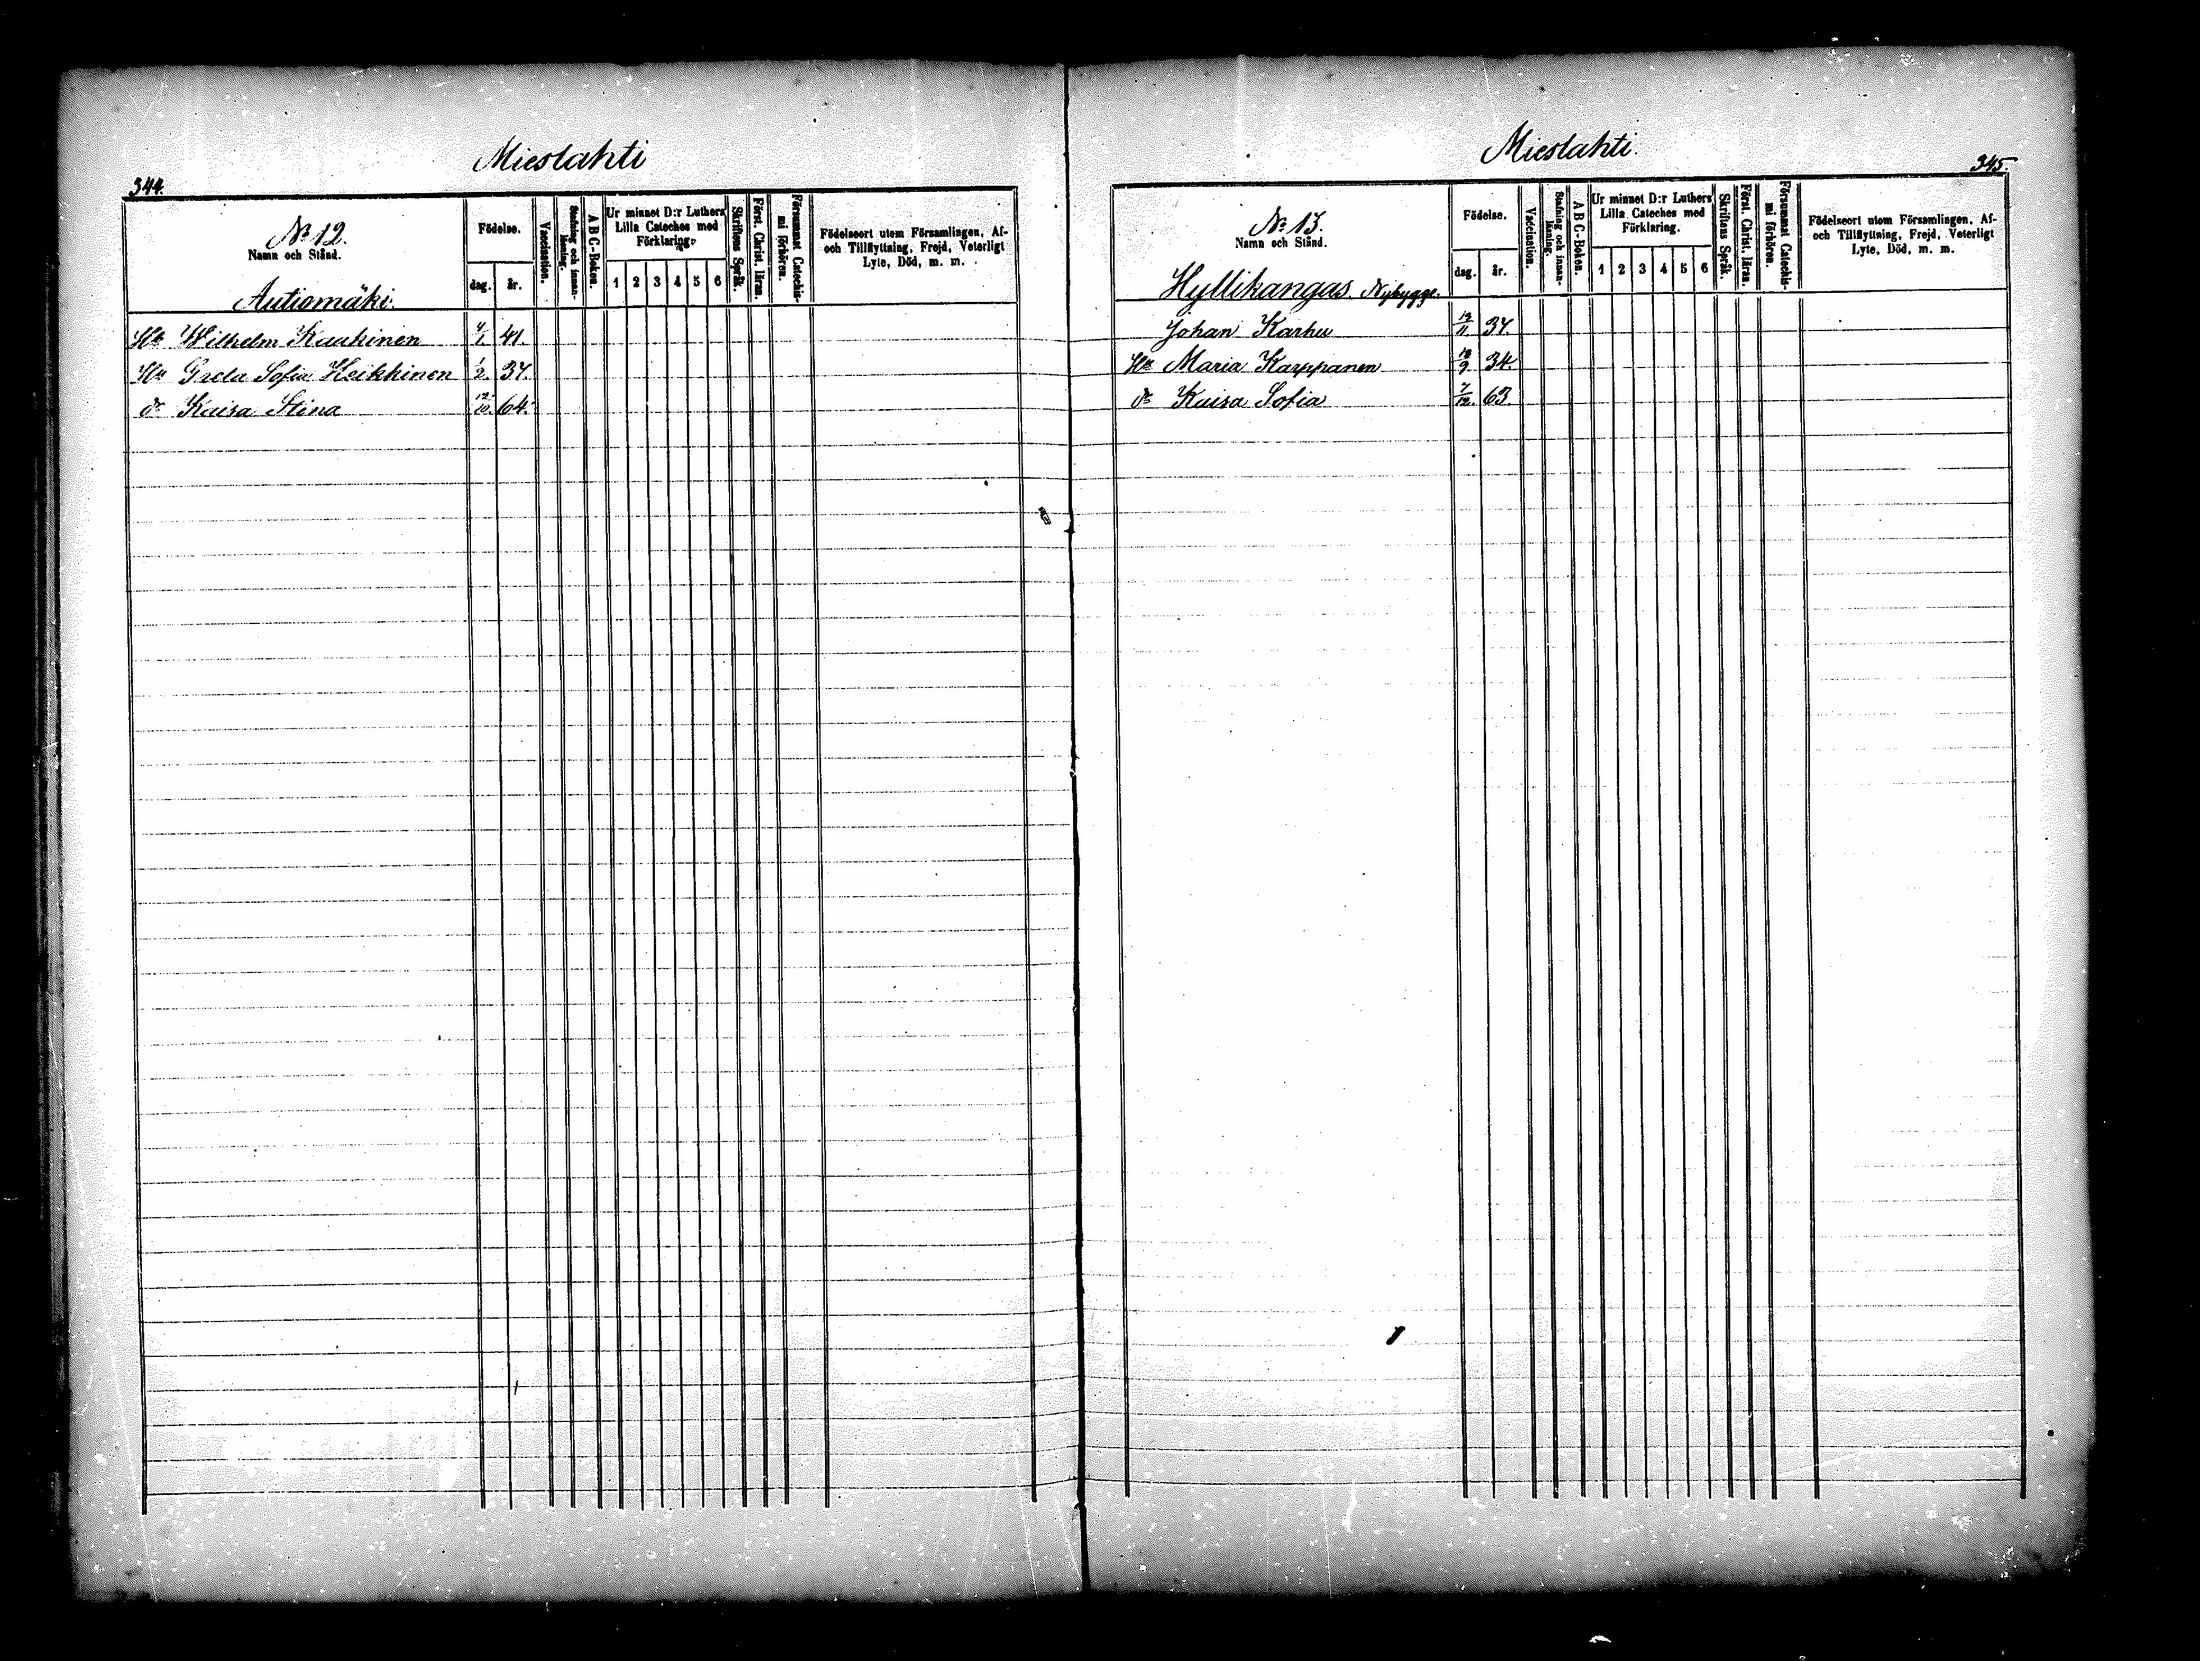 Mieslahti
344.
No 12.
Namn och Stånd.
Autiomäki.
Födelse.
dag. år.
Vaccination.
Stafning och innan-läsning.
A B C-Boken.
Ur minnet D:r Luthers Lilla Cateches med Förklaring.
1 2 3 4 5 6
Skriftens Språk.
Först. Christ. läran.
Försummat Catechis-mi förhören.
Födelseort utom Församlingen, Af- och Tillflyttning, Frejd, Veterligt Lyte, Död, m. m.
Wilhelm Kauhinen 4/1. 41.
Hu Greta Sofia Heikkinen 1/2. 37.
dr Kaisa Stina 12/10. 64.
Mieslahti.
345.
No 13.
Namn och Stånd.
Hyllikangas. Nybygge.
Födelse.
dag. år.
Vaccination.
Stafning och innan-läsning.
A B C-Boken.
Ur minnet D:r Luthers Lilla Cateches med Förklaring.
1 2 3 4 5 6
Skriftens Språk.
Först. Christ. läran.
Försummat Catechis-mi förhören.
Födelseort utom Församlingen, Af- och Tillflyttning, Frejd, Veterligt Lyte, Död, m. m.
Johan Karhu 12/11 37.
Hu Maria Karppanen 18/9 34.
dr Kaisa Sofia 7/12. 63.